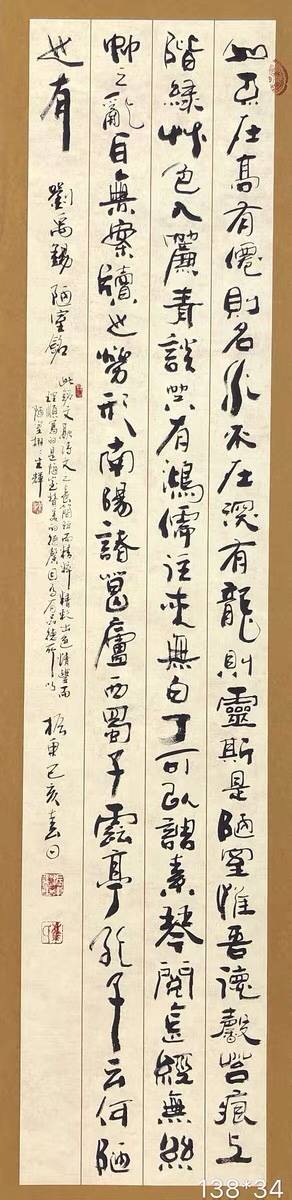 山不在高有僊則名水不在深有龍則靈斯是陋室惟吾德馨苔痕上
階綠艸色入簾青談笑有鴻儒往來無白丁可以調素琴閱金經無絲
竹之亂耳無案牘之勞形南陽諸葛廬西蜀子雲亭孔子云何陋
之有
劉禹錫 陋室銘
己亥春日
138*34